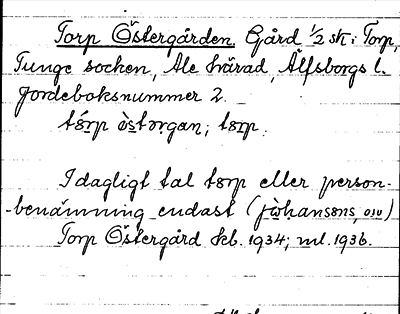 Torp Östergården. Gård 1/2 sk i Torp,
Tunge socken, Ale härad, Älfsborgs l.
Jordeboksnummer 2.
tɵrp östərgan; tɵrp.
I dagligt tal tɵrp eller person-
-benämning endast (jòhansɵns, osv)
Torp Östergård kb. 1934; ml. 1936.